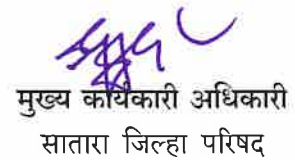 मुख्य कार्यकारी अधिकारी
सातारा जिल्हा परिषद